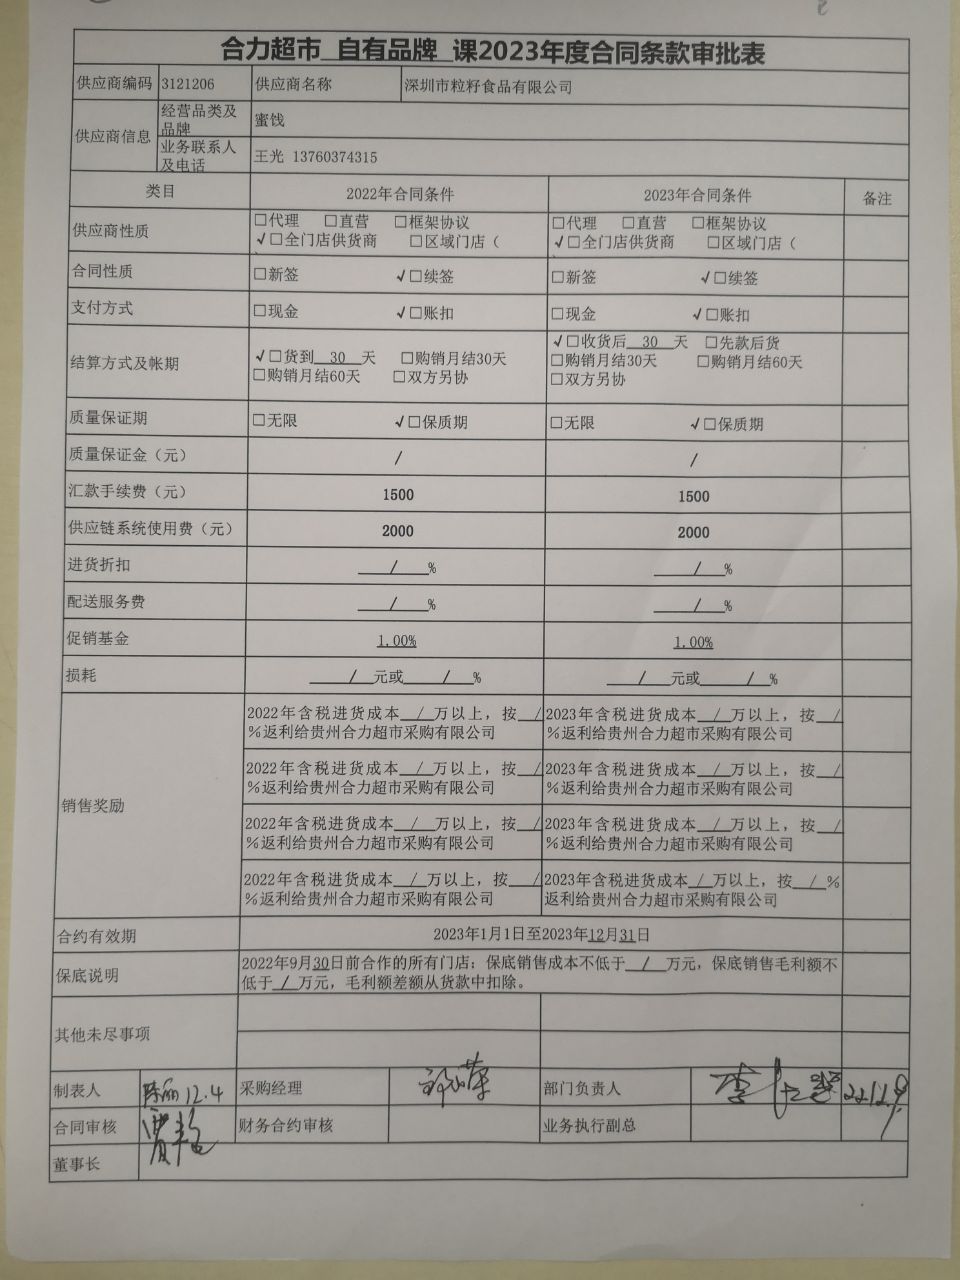 合力超市 自有品牌 课2023年度合同条款审批表
供应商编码 3121206 供应商名称 深圳市粒籽食品有限公司
供应商信息 经营品类及品牌 蜜饯
业务联系人及电话 王光 13760374315
类目 2022年合同条件 2023年合同条件 备注
供应商性质 □代理 □直营 □框架协议 □代理 □直营 □框架协议
√□全门店供货商 □区域门店（ √□全门店供货商 □区域门店（
合同性质 □新签 √□续签 □新签 √□续签
支付方式 □现金 √□账扣 □现金 √□账扣
结算方式及帐期 √□货到 30 天 □购销月结30天 √□收货后 30 天 □先款后货
□购销月结60天 □双方另协 □购销月结30天 □购销月结60天
□双方另协
质量保证期 □无限 √□保质期 □无限 √□保质期
质量保证金（元） / /
汇款手续费（元） 1500 1500
供应链系统使用费（元） 2000 2000
进货折扣 / % / %
配送服务费 / % / %
促销基金 1.00% 1.00%
损耗 / 元或 / % / 元或 / %
销售奖励
2022年含税进货成本 / 万以上，按 / 2023年含税进货成本 / 万以上，按 /
%返利给贵州合力超市采购有限公司 %返利给贵州合力超市采购有限公司
2022年含税进货成本 / 万以上，按 / 2023年含税进货成本 / 万以上，按 /
%返利给贵州合力超市采购有限公司 %返利给贵州合力超市采购有限公司
2022年含税进货成本 / 万以上，按 / 2023年含税进货成本 / 万以上，按 /
%返利给贵州合力超市采购有限公司 %返利给贵州合力超市采购有限公司
2022年含税进货成本 / 万以上，按 / 2023年含税进货成本 / 万以上，按 / %
%返利给贵州合力超市采购有限公司 返利给贵州合力超市采购有限公司
合约有效期 2023年1月1日至2023年12月31日
保底说明 2022年9月30日前合作的所有门店：保底销售成本不低于 / 万元，保底销售毛利额不
低于 / 万元，毛利额差额从货款中扣除。
其他未尽事项
制表人 12.4 采购经理 部门负责人
合同审核 财务合约审核 业务执行副总
董事长